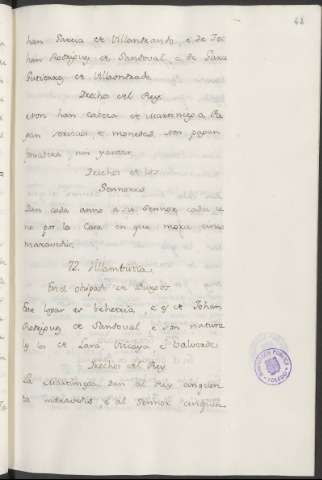 42
han Garcia de Villandrando, e de Joo
han Rodrigues de Sandoval, e de Garci
Gutierrez de Villandrado
Drechos del Rey
Non han cabeza de Martiniega. Pa
gan servicios, e monedas, non pagan
fonsadera, nin yantar.
Drechos de los
Sennores
Dan cada anno a su Sennor cada u
no por la Casa en que mora cinco
maravedis.
72. Villambutria.
En el obispado de Burgos
Este logar es behetria, e es de Johan
Rodriguez de Sandoval, e son natura
les los de Lara Vizcaya e
Drechos del Rey
La Martiniega dan al Rey cinquen
ta maravedis, e al Sennor cinquen
BIBLIOTECA PUBLICA
TOLEDO